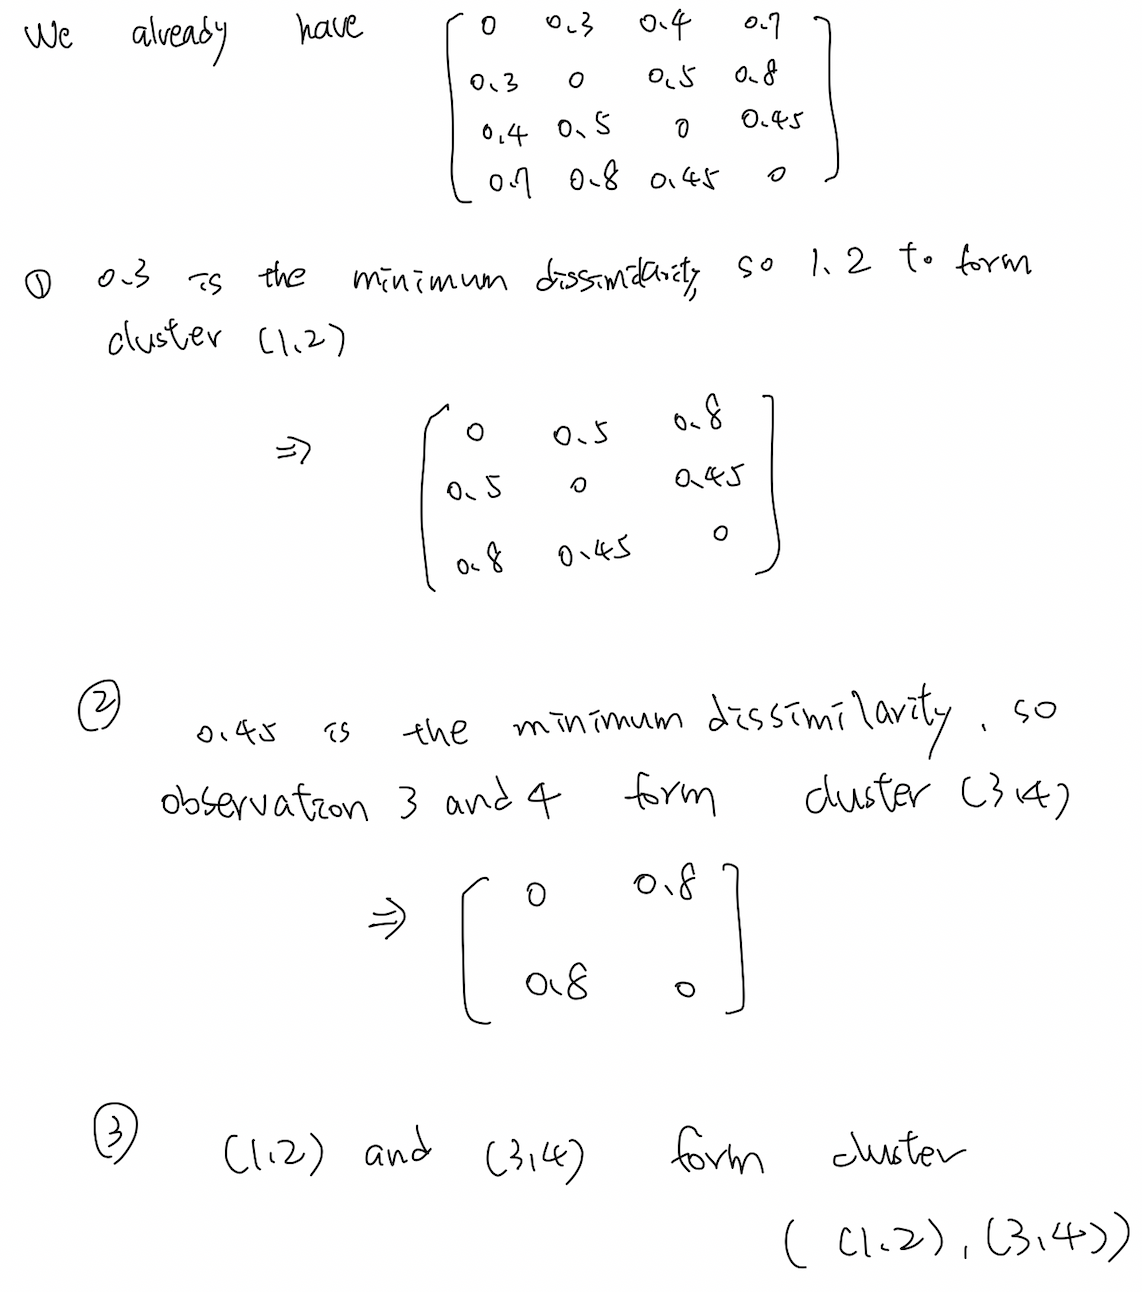 We already have [ 0 0.3 0.4 0.7
0.3 0 0.5 0.8
0.4 0.5 0 0.45
0.7 0.8 0.45 0 ]
① 0.3 is the minimum dissimilarity, so 1.2 to form
cluster (1.2)
⇒ [ 0 0.5 0.8
0.5 0 0.45
0.8 0.45 0 ]
② 0.45 is the minimum dissimilarity, so
observation 3 and 4 form cluster (3.4)
⇒ [ 0 0.8
0.8 0 ]
③ (1.2) and (3,4) form cluster
( (1.2), (3.4))